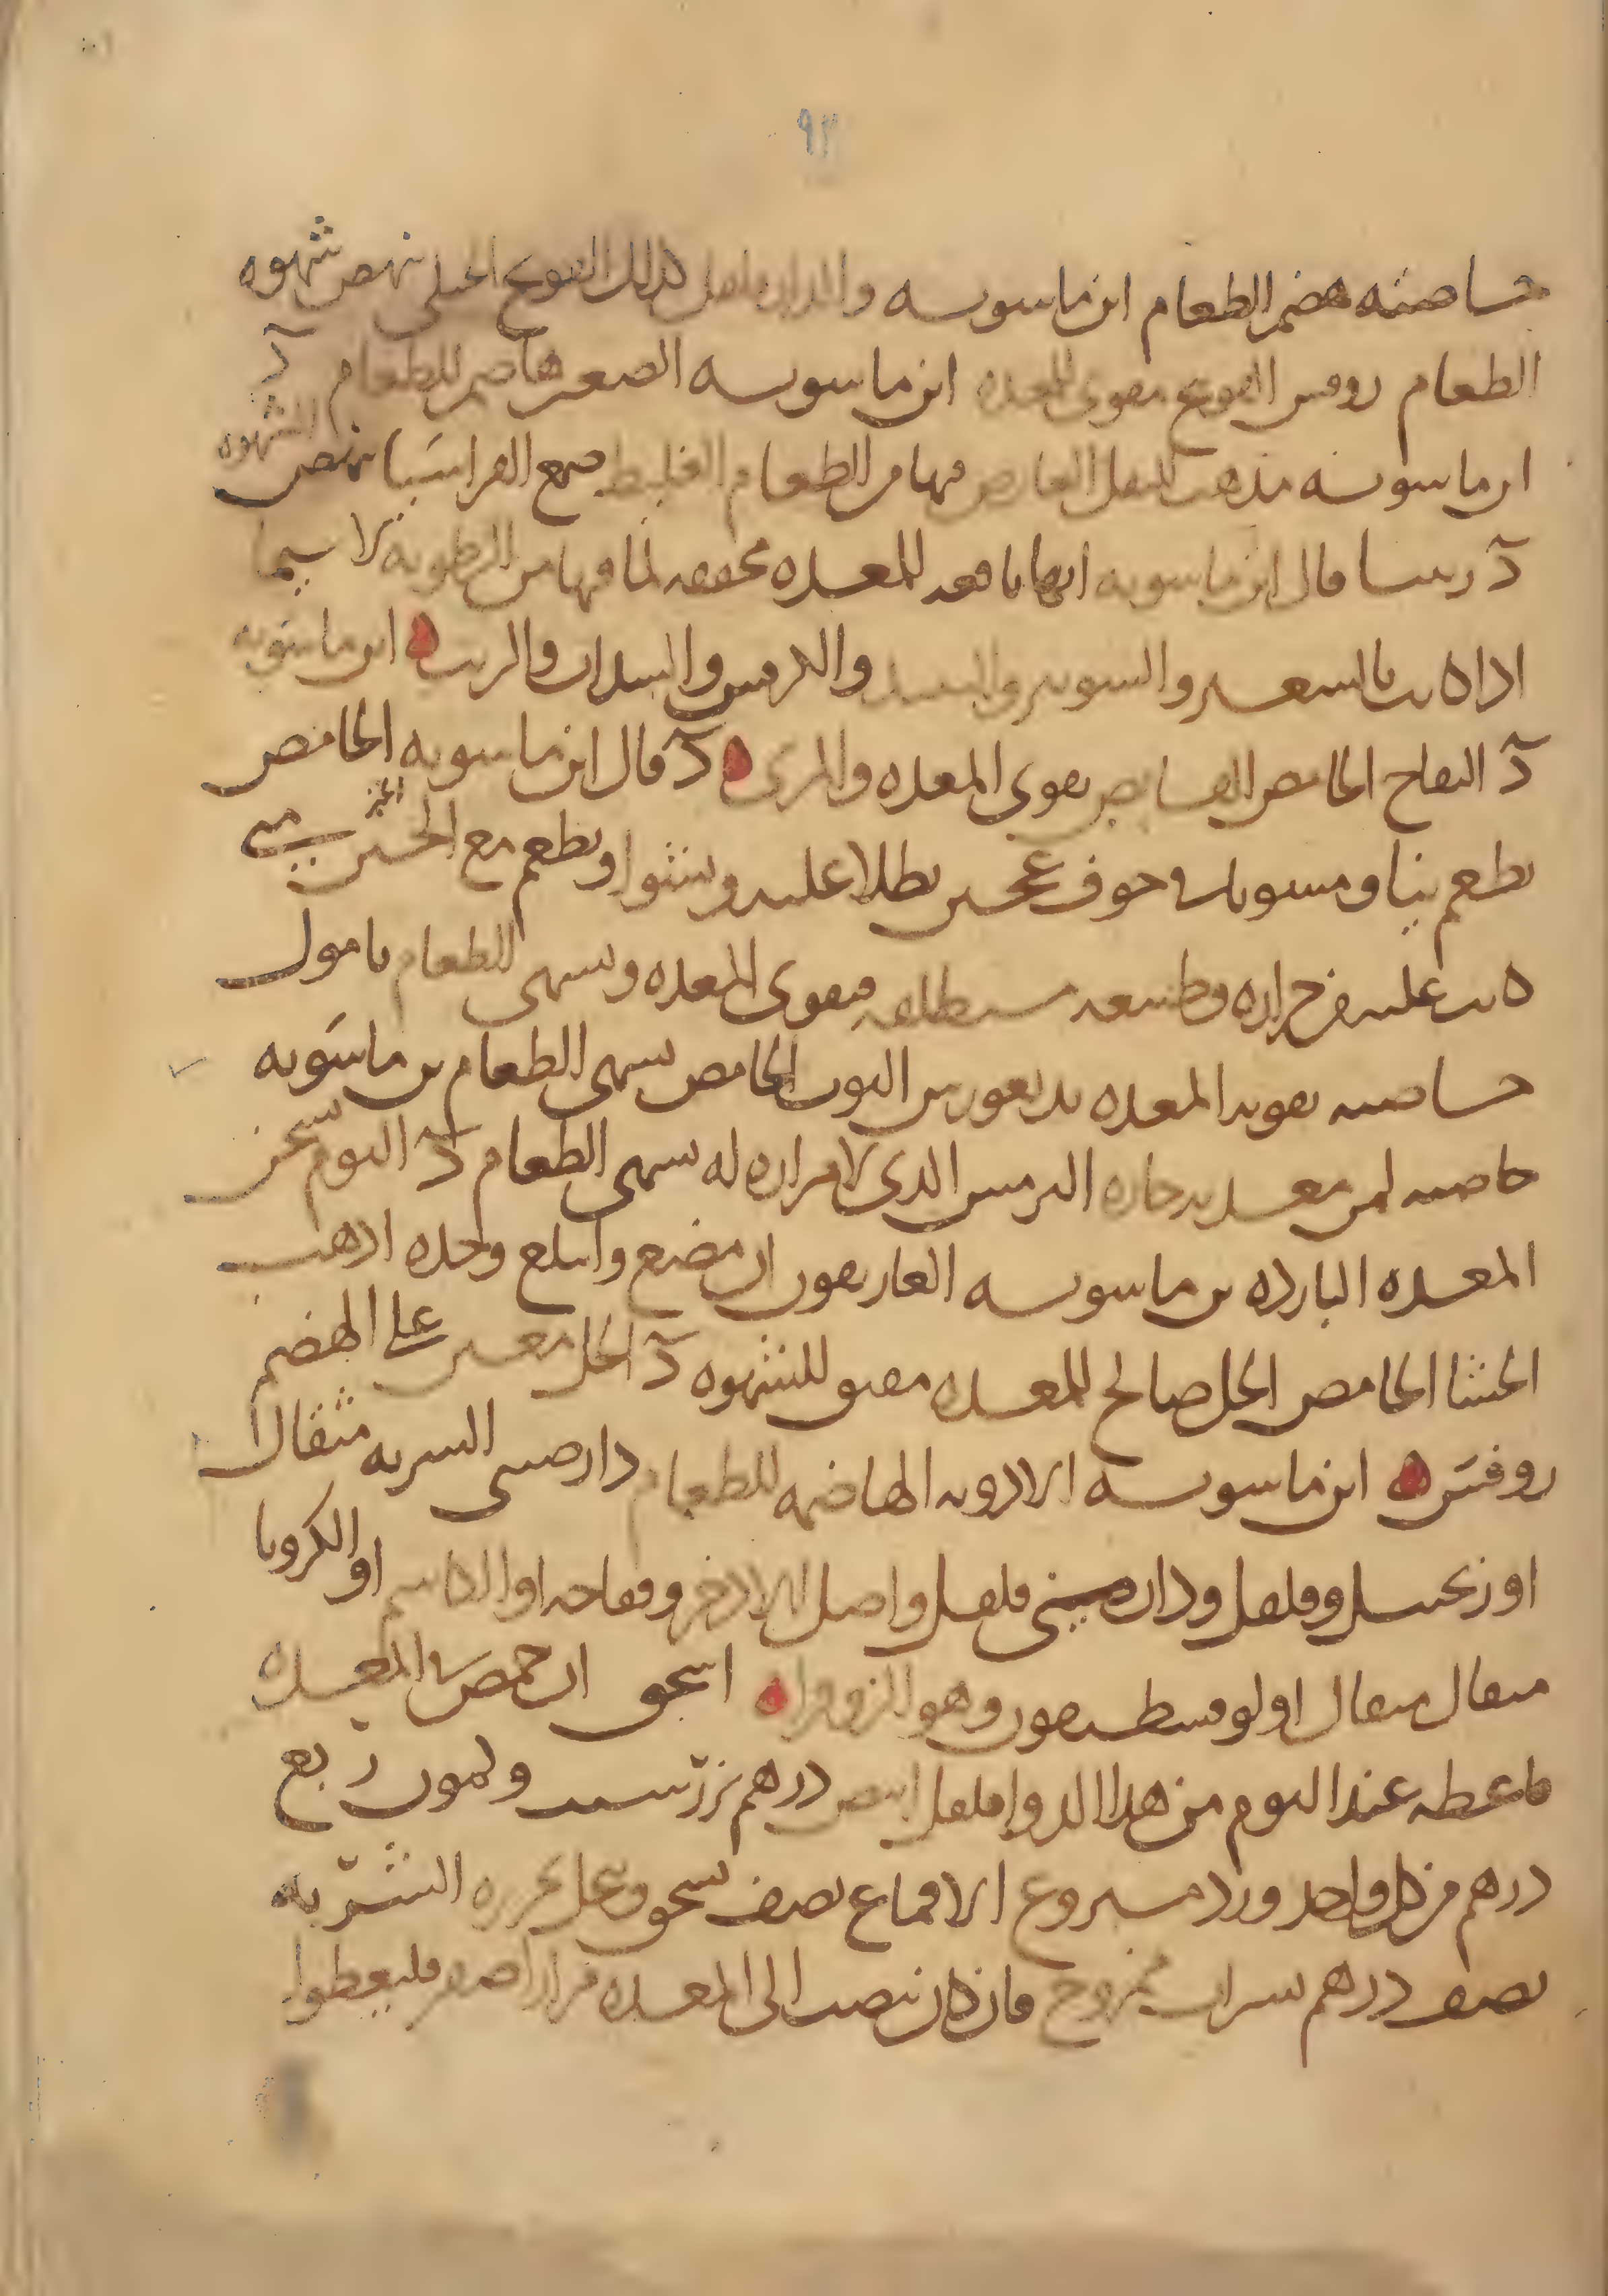 ٩٣
خاصته هضم الطعام ابن ماسويه والدار فلفل كذلك الفودنج الجبلي ينهض شهوه
الطعام روفس الفودنج مقوى للمعده ابن ماسويه الصعتر هاضم للطعام د
ابن ماسويه مذهب للثقل العارض فيها من الطعام الغليظ صمغ القراسيا ينهض الشهوه
د قال ابن ماسويه انها نافعه للمعده مجففه لما فيها من الرطوبه لا سيما
اذا بالصعتر والشونيز والترمس والسداب والزيت ابن ماسويه
د التفاح الحامض القابض يقوى المعده والمرى د قال ابن ماسويه الحامض
يطعم نيا ومشويا في جوف عجين يطلا عليه ويشوا ويطعم مع الخبز متى
غلبت عليه حراره وطبيعه مستطلقه فيقوى المعده ويشهى للطعام
خاصته تقويه المعده التوت الحامض يشهى الطعام بن ماسويه
خاصه لمن معدته حاره الترمس الذى لا مراره له يشهى الطعام د الثوم يسخن
المعده البارده بن ماسويه الغاريقون ان مضغ وابتلع وحده اذهب
الجشا الحامض الخل صالح للمعده مفتق للشهوه د الخل معين على الهضم
روفس ابن ماسويه الادويه الهاضمه للطعام دارصينى الشربه مثقال
او زنجبيل وفلفل ودارصينى فلفل واصل الاذخر وفقاحه او الكاشم او الكرويا
مثقال مثقال او لوقسطيقون وهو الزوفرا اسحق ان حمضت المعده
فاعطه عند النوم من هذا الدوا فلفل ابيض درهم بزر شبت وكمون ربع
درهم من كل واحد ورد منزوع الاقماع نصف يسحق وينخل بحريره الشربه
نصف درهم بشراب ممزوج فان كان ينصب الى المعده مرار اصفر فليعطوا